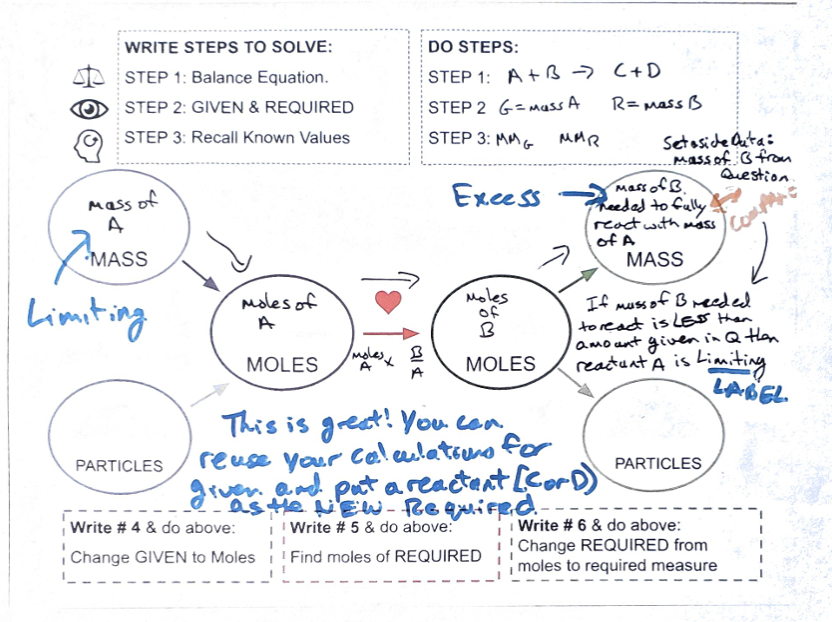 WRITE STEPS TO SOLVE:
STEP 1: Balance Equation.
STEP 2: GIVEN & REQUIRED
STEP 3: Recall Known Values
DO STEPS:
STEP 1: A + B → C + D
STEP 2 G = mass A R = mass B
STEP 3: MM_G MM_R
Set aside Data:
mass of B from
Question
Compare
Excess →
mass of B
needed to fully
react with mass
of A
MASS
mass of
A
MASS
Limiting
Moles of
A
MOLES
moles
A x B/A
Moles
of
B
MOLES
If mass of B needed
to react is LESS then
amount given in Q then
reactant A is Limiting
LABEL
PARTICLES
PARTICLES
This is great! You can
reuse your calculations for
given and put a reactant [C or D)
as the NEW Required.
Write # 4 & do above:
Change GIVEN to Moles
Write # 5 & do above:
Find moles of REQUIRED
Write # 6 & do above:
Change REQUIRED from
moles to required measure